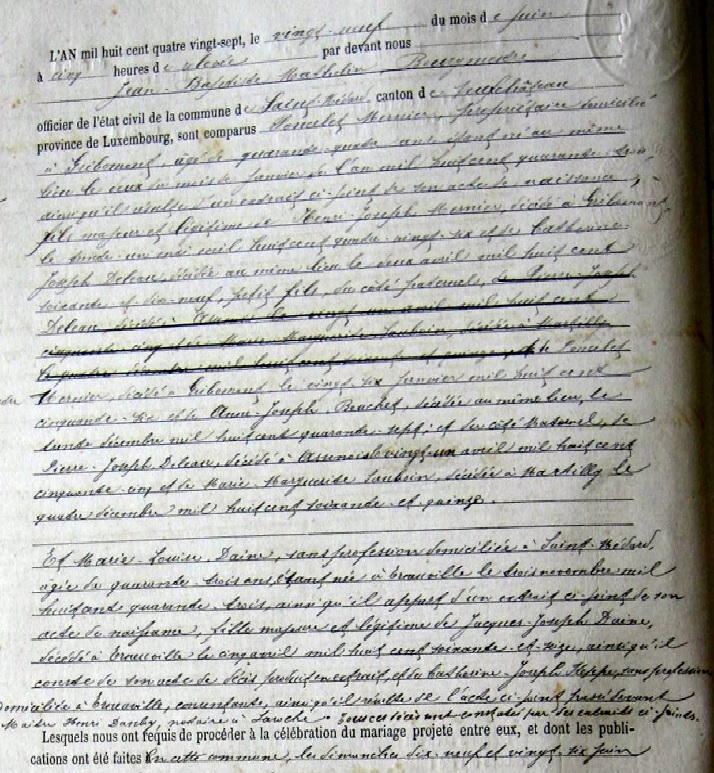 L'AN mil huit cent quatre vingt-sept, le vingt-neuf du mois de Juin
à cinq heures de par devant nous
Jean-Baptiste Mathelin, Bourgmestre
officier de l'état civil de la commune de Saint-Médard, canton de Neufchâteau
province de Luxembourg, sont comparus Poncelet Mernier, propriétaire domicilié
à Gribomont, âgé de quarante quatre ans étant né au même
lieu le deux du mois de Janvier de l'an mil huit cent quarante
ainsi qu'il résulte d'un extrait ci-joint de son acte de naissance,
fils majeur et légitime de Henri-Joseph Mernier, décédé à Gribomont
le trente un mai mil huit cent quatre-vingt-six et de Catherine
Joseph Deleau, décédée au même lieu le deux avril mil huit cent
soixante et dix-neuf, petit fils, du côté paternel, de Pierre-Joseph
Deleau décédé à le vingt un avril mil huit cent
cinquante cinq et de Marie-Marguerite Laubain, décédée à Martilly
le quatre décembre mil huit cent soixante et quinze, de Poncelet
Mernier, décédé à Gribomont, le vingt six Janvier mil huit cent
cinquante-six et de Anne-Joseph, décédée au même lieu, le
trente décembre mil huit cent quarante-sept; et du côté maternel, de
Pierre-Joseph Deleau, décédé à le vingt-un avril mil huit cent
cinquante-cinq et de Marie-Marguerite Laubain, décédée à Martilly le
quatre décembre mil huit cent soixante-et-quinze.
Et Marie-Louise Daine, sans profession domiciliée à Saint-Médard,
âgée de quarante-trois ans étant née à le trois novembre mil
huit cent quarante-trois, ainsi qu'il appert d'un extrait ci-joint de son
acte de naissance, fille majeure et légitime de Jacques-Joseph Daine,
décédé à le cinq avril mil huit cent soixante-et-seize, ainsi qu'il
conste de son acte de décès produit en extrait, et de Catherine-Joseph, sans profession
domiciliée à, consentante, ainsi qu'il résulte de l'acte ci-joint passé devant
Maître Henri, notaire à. Tous ces décès sont constatés par des extraits ci-joints.
Lesquels nous ont requis de procéder à la célébration du mariage projeté entre eux, et dont les publi-
cations ont été faites En cette commune, les dimanches dix-neuf et vingt-six juin